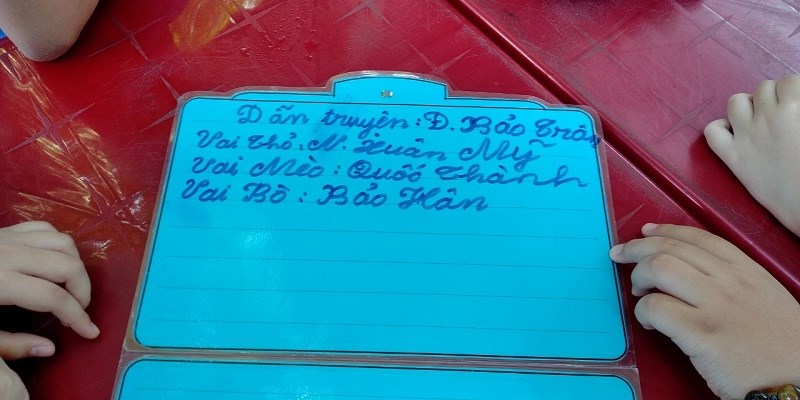 Dẫn truyện: Đ. Bảo Trân
Vai Thỏ: N. Xuân Mỹ
Vai Mèo: Quốc Thành
Vai Bò: Bảo Hân